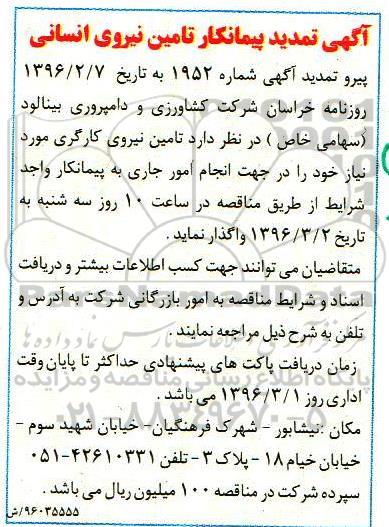 آگهی تمدید پیمانکار تامین نیروی انسانی
پیرو تمدید آگهی شماره ۱۹۵۲ به تاریخ ۱۳۹۶/۲/۷
روزنامه خراسان شرکت کشاورزی و دامپروری بینالود
(سهامی خاص ) در نظر دارد تامین نیروی کارگری مورد
نیاز خود را در جهت انجام امور جاری به پیمانکار واجد
شرایط از طریق مناقصه در ساعت ۱۰ روز سه شنبه به
تاریخ ۱۳۹۶/۳/۲ واگذار نماید .
متقاضیان می توانند جهت کسب اطلاعات بیشتر و دریافت
اسناد و شرایط مناقصه به امور بازرگانی شرکت به آدرس و
تلفن به شرح ذیل مراجعه نمایند .
زمان دریافت پاکت های پیشنهادی حداکثر تا پایان وقت
اداری روز ۱۳۹۶/۳/۱ می باشد .
مکان :نیشابور - شهرک فرهنگیان- خیابان شهید سوم -
خیابان خیام ۱۸ - پلاک ۳ - تلفن ۴۲۶۱۰۳۳۱-۰۵۱
سپرده شرکت در مناقصه ۱۰۰ میلیون ریال می باشد .
۹۶۰۳۵۵۵۵/ش
پایگاه اطلاع رسانی مناقصه و مزایده
۰۲۱-۸۸۳۴۹۶۷۰-۵